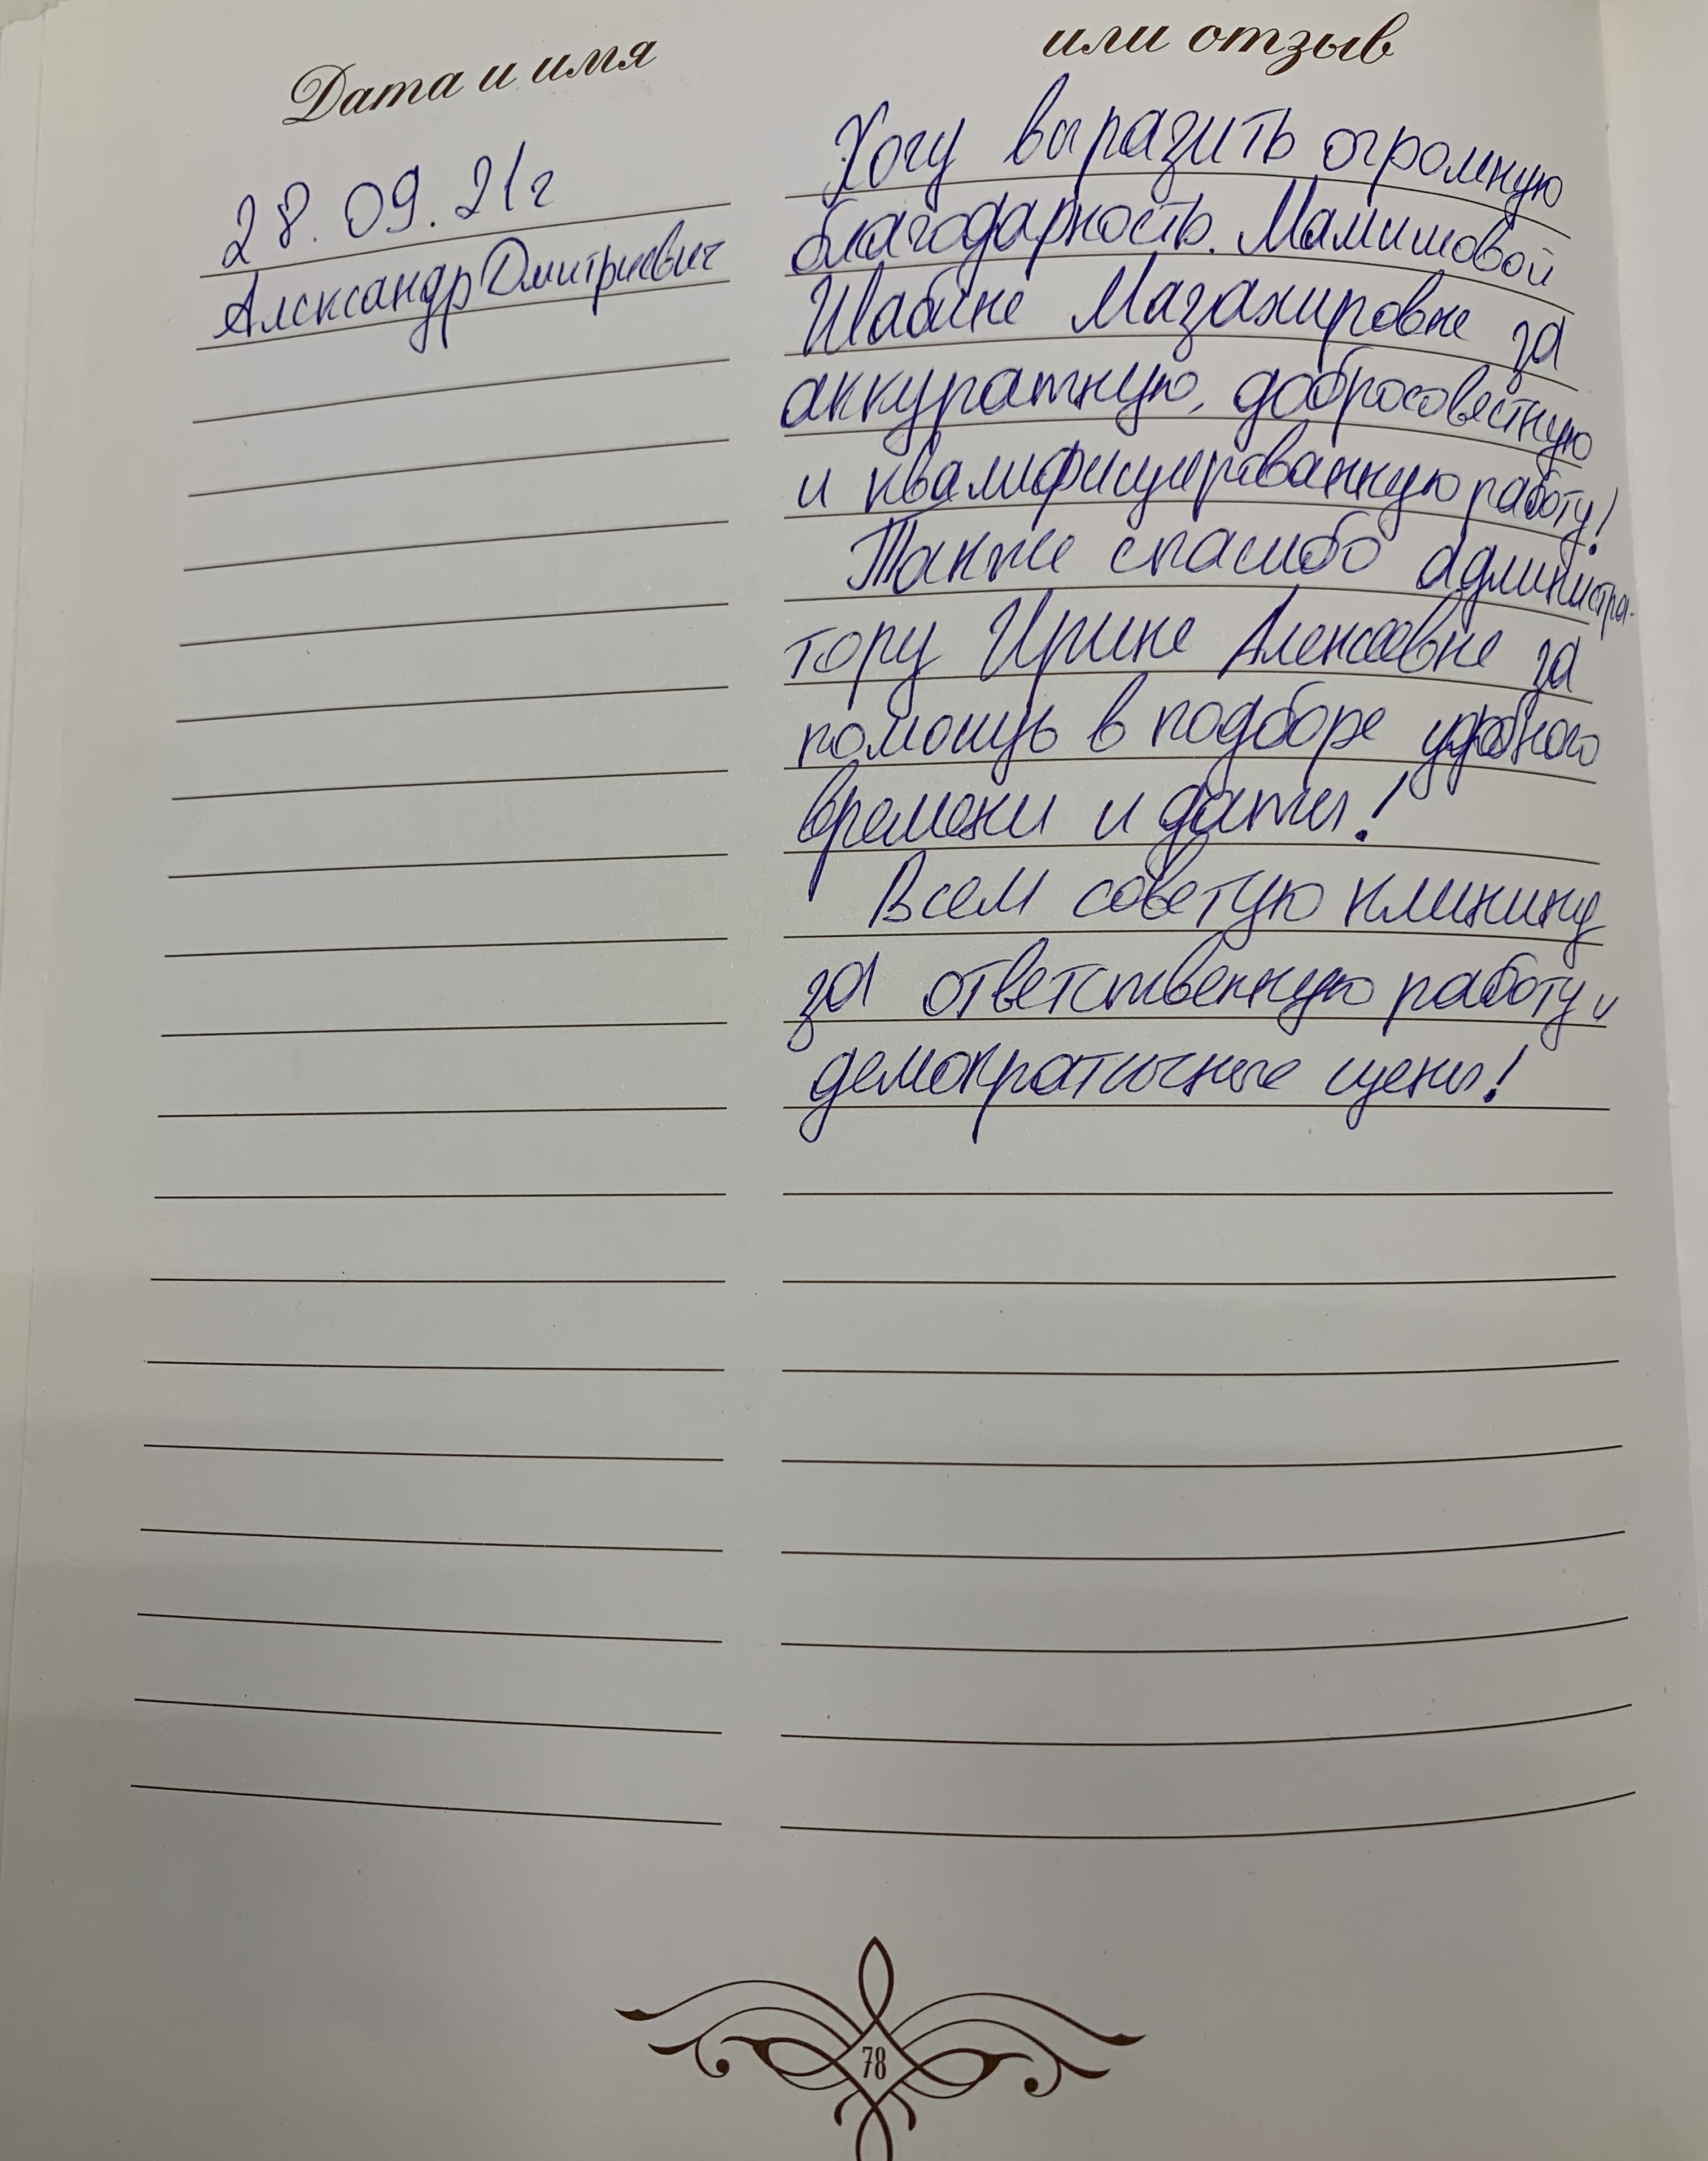 Дата и имя
или отзыв
28.09.21г
Александр Дмитриевич
Хочу выразить огромную
благодарность. Мамишовой
Шабине Мазахировне за
аккуратную, добросовестную
и квалифицированную работу!
Также спасибо администра-
тору Ирине Алексеевне за
помощь в подборе удобного
времени и даты!
Всем советую клинику
за ответственную работу и
демократичные цены!
78